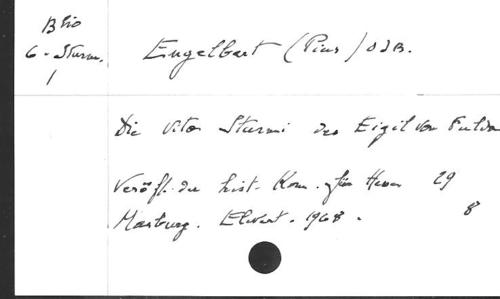 Bio
6 - Sturm.
1
Engelbert (Pius) OSB.
Die Vita Sturmi des Eigil von Fulda
Veröff. der hist. Kom. für Hessen 29
Marburg. Elwert. 1968. 8